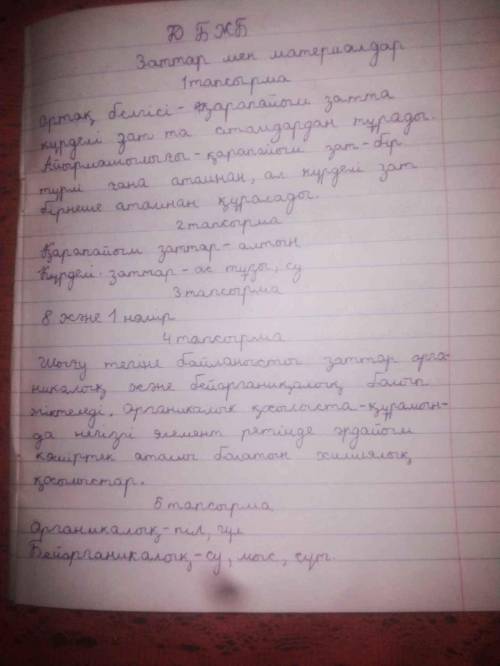 Ю БЖБ
Заттар мен материалдар
1 тапсырма
Ортақ белгісі - қарапайым затта
күрделі зат та атомдардан тұрады.
Айырмашылығы - қарапайым зат - бір
түрлі ғана атомнан, ал күрделі зат
бірнеше атомнан құралады.
2 тапсырма
Қарапайым заттар - алтын
Күрделі заттар - ас тұзы, су
3 тапсырма
8 және 1 нөмір
4 тапсырма
Шығу тегіне байланысты заттар орга-
никалық және бейорганикалық болып
жіктеледі. Органикалық қосылыста - құрамын-
да негізгі элемент ретінде әрдайым
көміртек атомы болатын химиялық
қосылыстар.
5 тапсырма
Органикалық - піл, гүл
Бейорганикалық - су, мыс, сүт.